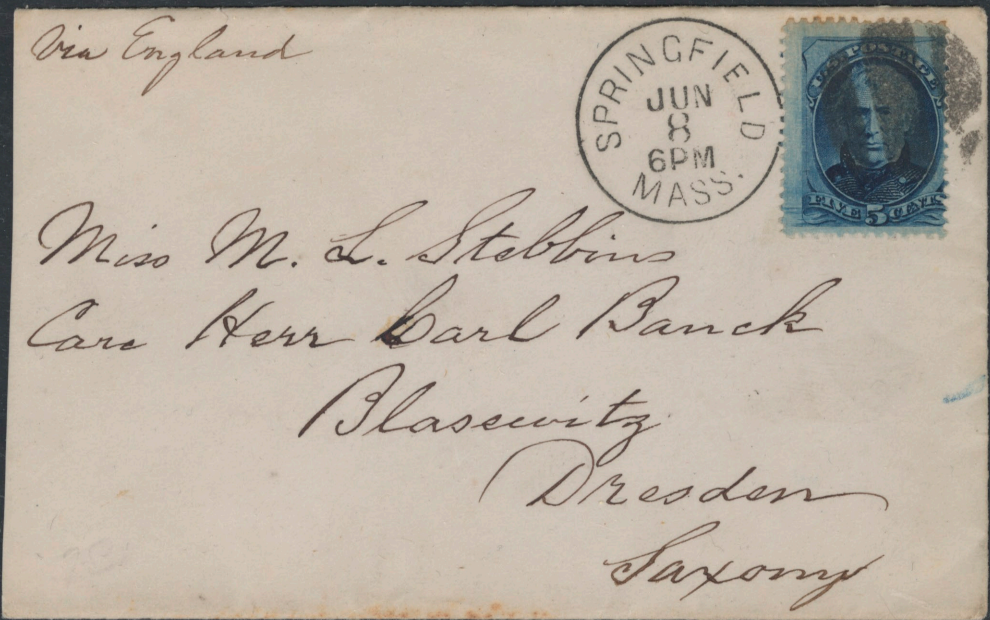 Via England
SPRINGFIELD
JUN
8
6PM
MASS.
U.S. POSTAGE
FIVE 5 CENTS
Miss M. L. Stebbins
Care Herr Carl Banck
Blasewitz
Dresden
Saxony